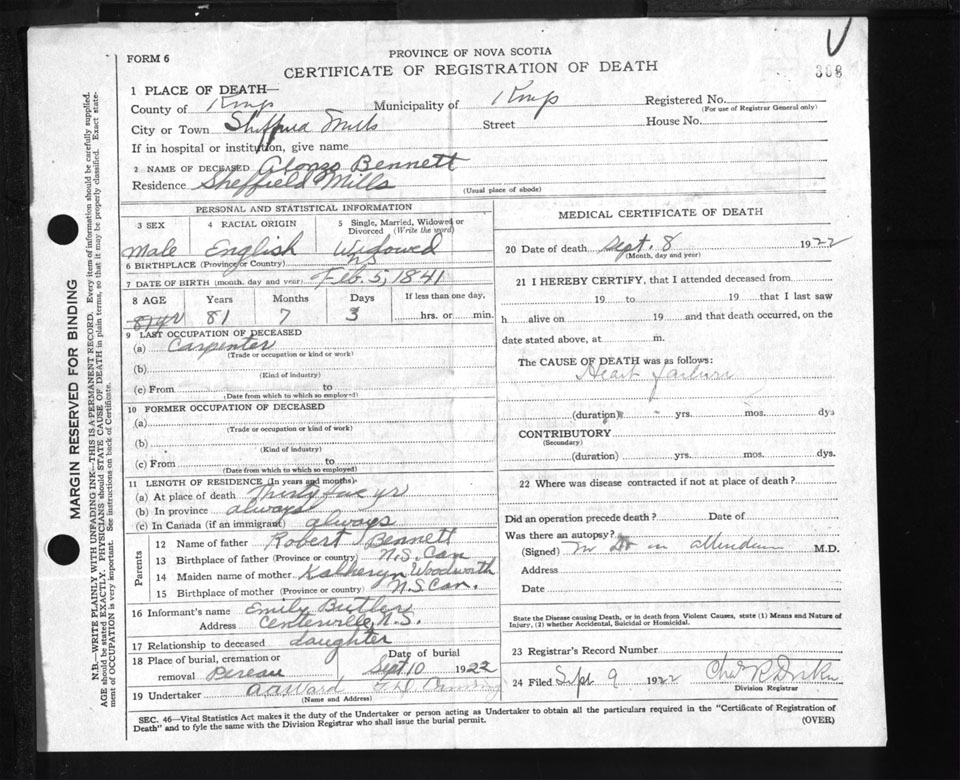 FORM 6
PROVINCE OF NOVA SCOTIA
CERTIFICATE OF REGISTRATION OF DEATH
308
1 PLACE OF DEATH—
County of Kings Municipality of Kings Registered No.
(For use of Registrar General only)
City or Town Sheffield Mills Street House No.
If in hospital or institution, give name
2 NAME OF DECEASED Alonzo Bennett
Residence Sheffield Mills
(Usual place of abode)
PERSONAL AND STATISTICAL INFORMATION
3 SEX 4 RACIAL ORIGIN 5 Single, Married, Widowed or Divorced (Write the word)
Male English Widowed
6 BIRTHPLACE (Province or Country) NS
7 DATE OF BIRTH (month, day and year) Feb. 5, 1841
8 AGE Years Months Days If less than one day,
81 yr 81 7 3 hrs. or min.
9 LAST OCCUPATION OF DECEASED
(a) Carpenter
(Trade or occupation or kind or work)
(b)
(Kind of industry)
(c) From to
(Date from which to which so employed)
10 FORMER OCCUPATION OF DECEASED
(a)
(Trade or occupation or kind of work)
(b)
(Kind of industry)
(c) From to
(Date from which to which so employed)
11 LENGTH OF RESIDENCE (In years and months)
(a) At place of death Thirty yr
(b) In province always
(c) In Canada (if an immigrant) always
Parents
12 Name of father Robert Bennett
13 Birthplace of father (Province or country) N.S. Can
14 Maiden name of mother Katheryn Woodworth
15 Birthplace of mother (Province or country) N.S Can.
16 Informant's name Emily Butler
Address Centerville, N.S.
17 Relationship to deceased daughter
18 Place of burial, cremation or removal Pereau Date of burial Sept 10 1922
19 Undertaker A A Ward
(Name and Address)
MEDICAL CERTIFICATE OF DEATH
20 Date of death Sept. 8 1922
(Month, day and year)
21 I HEREBY CERTIFY, that I attended deceased from
19 to 19 that I last saw
h alive on 19 and that death occurred, on the
date stated above, at m.
The CAUSE OF DEATH was as follows:
Heart failure
(duration) yrs. mos. dys
CONTRIBUTORY
(Secondary)
(duration) yrs. mos. dys.
22 Where was disease contracted if not at place of death?
Did an operation precede death? Date of
Was there an autopsy?
(Signed) no Dr in M.D.
Address
Date
State the Disease causing Death, or in death from Violent Causes, state (1) Means and Nature of
Injury, (2) whether Accidental, Suicidal or Homicidal.
23 Registrar's Record Number
24 Filed Sept 9 1922
Division Registrar
SEC. 46—Vital Statistics Act makes it the duty of the Undertaker or person acting as Undertaker to obtain all the particulars required in the "Certificate of Registration of
Death" and to fyle the same with the Division Registrar who shall issue the burial permit. (OVER)
MARGIN RESERVED FOR BINDING
N.B.—WRITE PLAINLY WITH UNFADING INK—THIS IS A PERMANENT RECORD. Every item of information should be carefully supplied.
AGE should be stated EXACTLY. PHYSICIANS should STATE CAUSE OF DEATH in plain terms, so that it may be properly classified. Exact state-
ment of OCCUPATION is very important. See instructions on back of Certificate.